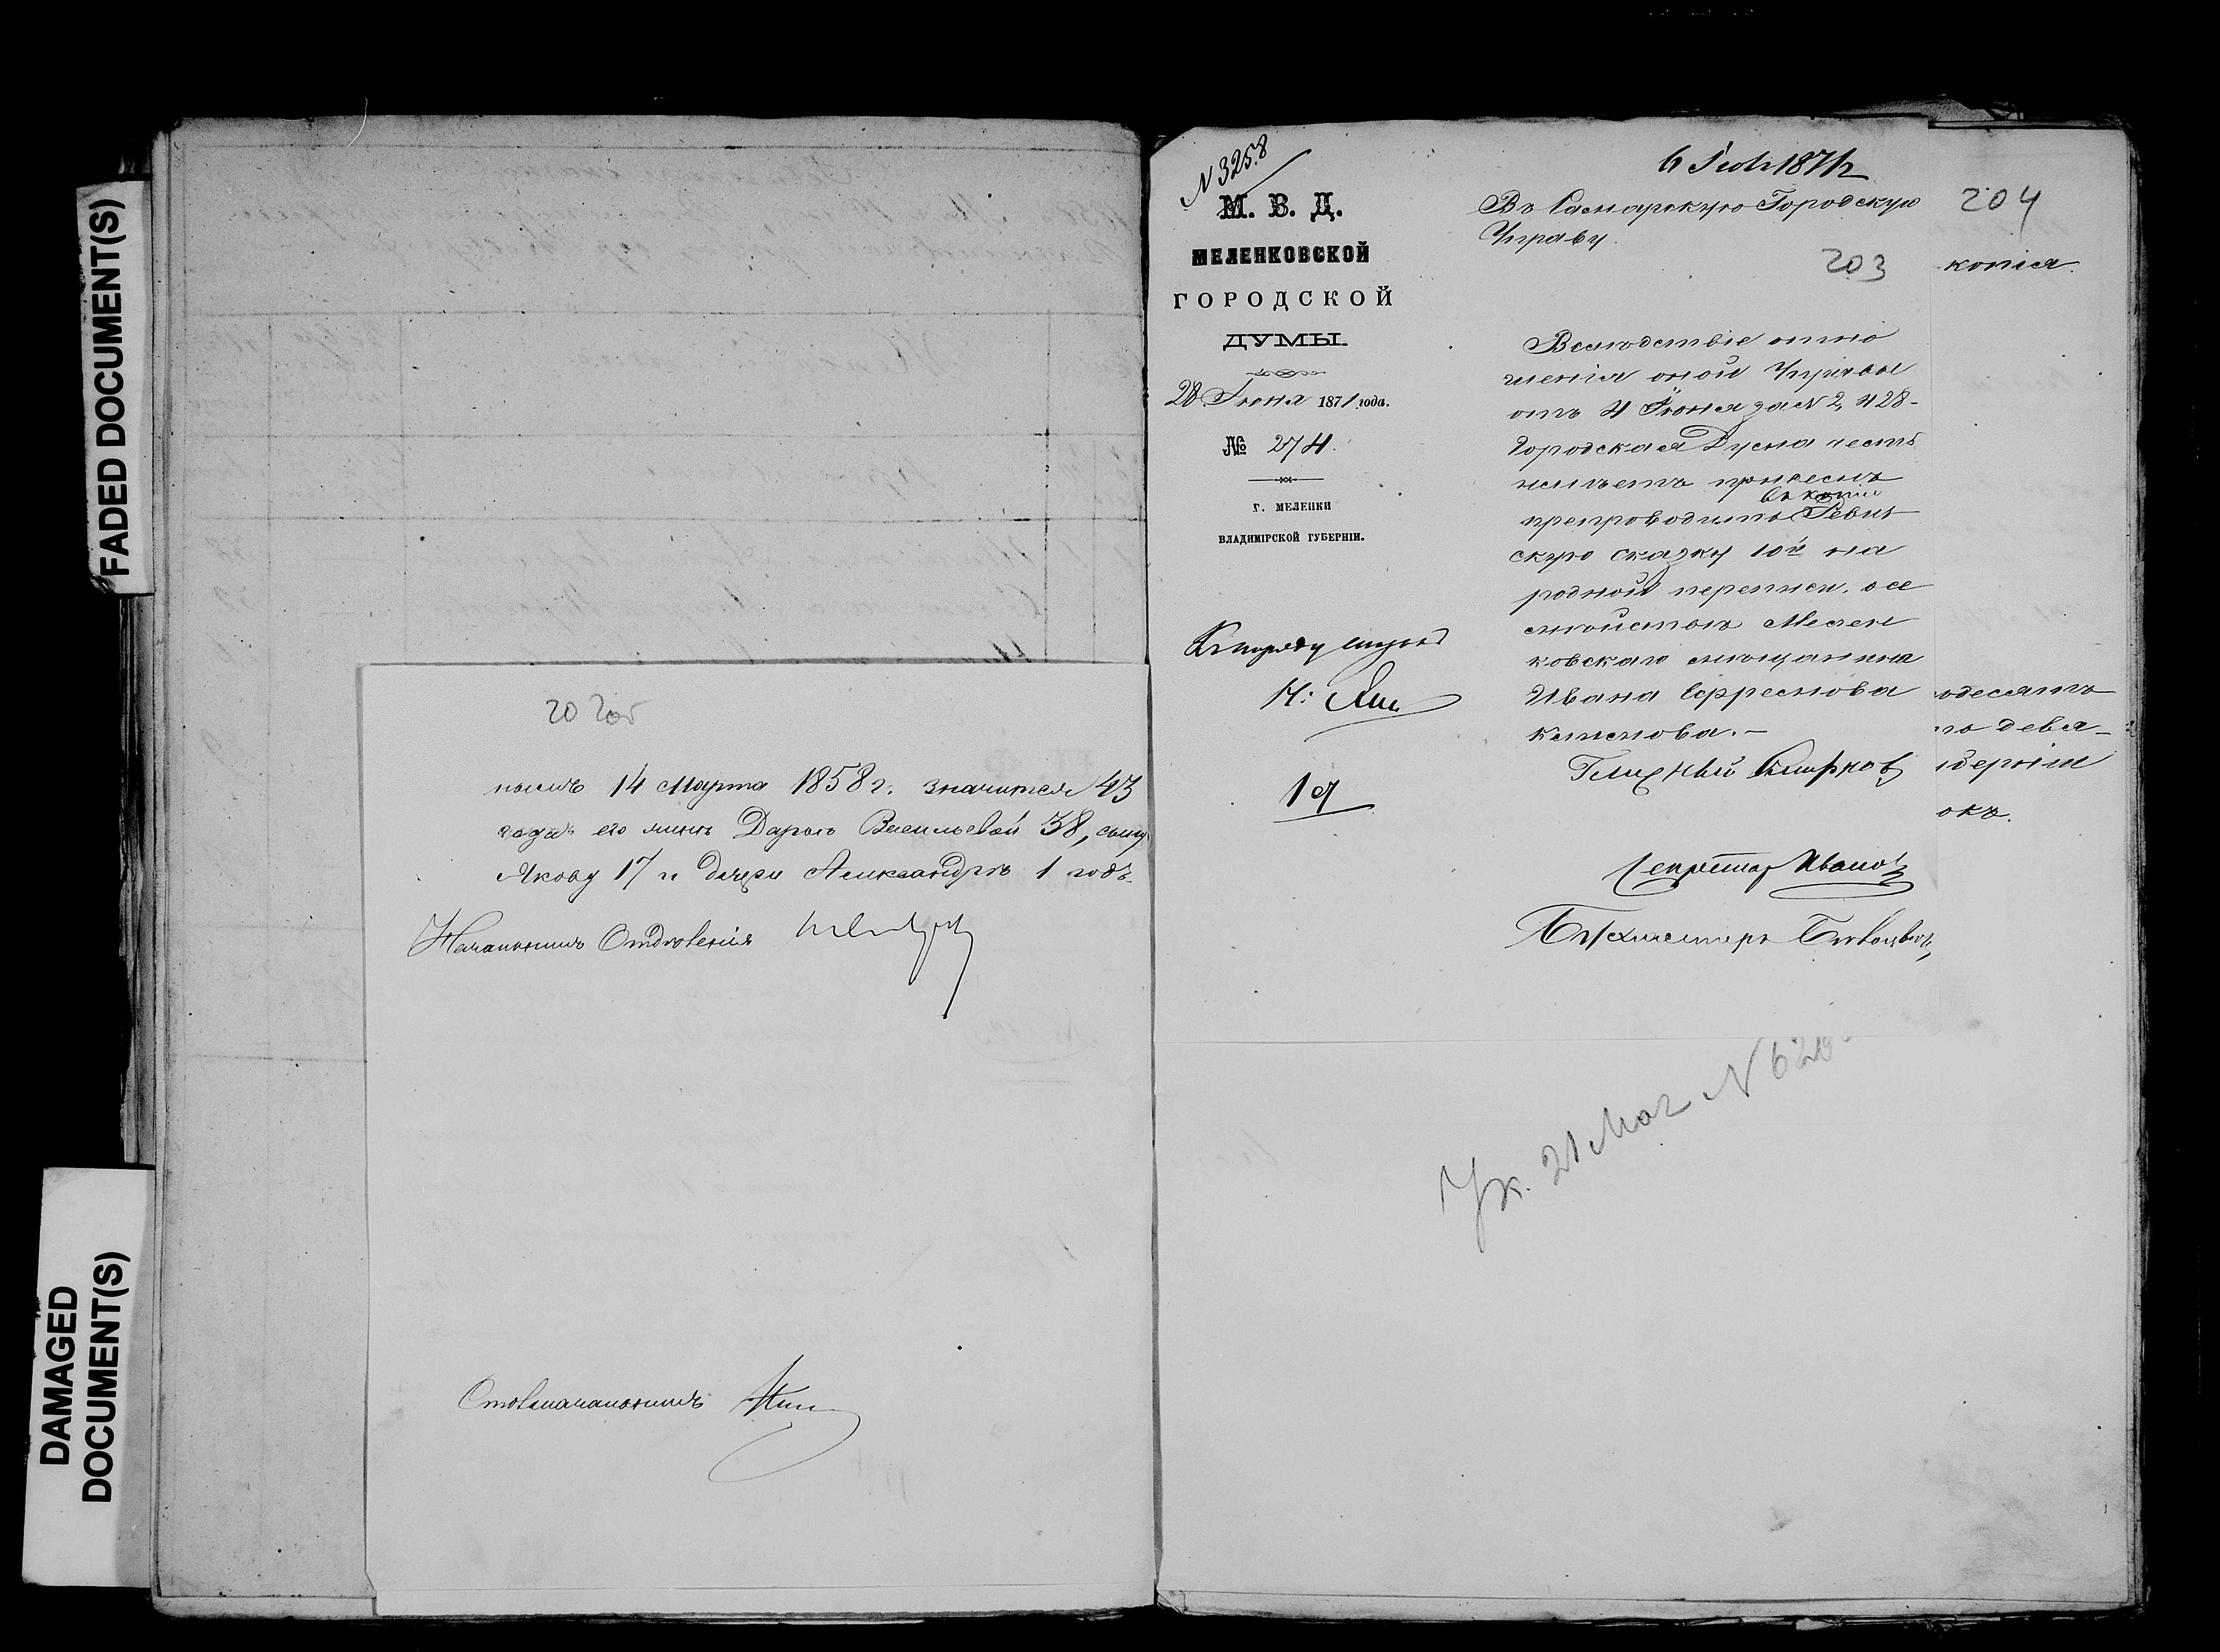 FADED DOCUMENT(S)
DAMAGED
DOCUMENT(S)
14 Марта 1858 г. значится 43
года его жинѣ Дарьѣ Васильевой 38, сыну
Якову 17 и дочери Александрѣ 1 годъ.
Начальникъ Отдѣленія
Столоначальникъ
N 3258
М. В. Д.
МЕЛЕНКОВСКОЙ
ГОРОДСКОЙ
ДУМЫ.
28 Іюня 1871 года.
№ 274.
Г. МЕЛЕНКИ
ВЛАДИМІРСКОЙ ГУБЕРНІИ.
19
6 Іюл 1871
Въ Самарскую Городскую
Управу.
203
Вслѣдствіе отно
шенія оной Управы
отъ 4 Іюня за N 2,428-
Городская Дума честь
имѣетъ
въ копіи
препроводить Ревиз
скую сказку 10й на
родной переписи, о се
мѣйствѣ Мелен
ковскаго мѣщанина
Ивана Ефремова
Гласный
Секретарь Ивановъ
204
копія.
одесять
то девя-
берніи
окъ.
Ук. 21 Мая N 620